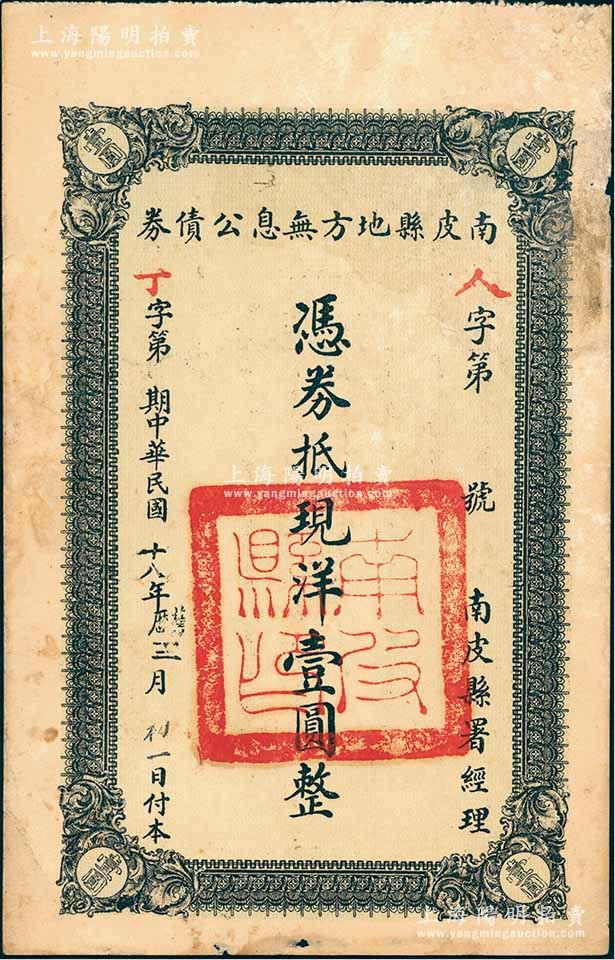 上海陽明拍賣
www.yangmingauction.com
南皮縣地方無息公債券
人字第 號 南皮縣署經理
憑券抵現洋壹圓整
丁字第 期中華民國十八年舊曆三月初一日付本
壹圓
壹圓
壹圓
壹圓
南皮縣印
上海陽明拍賣
www.yangmingauction.com
上海陽明拍賣
www.yangmingauction.com